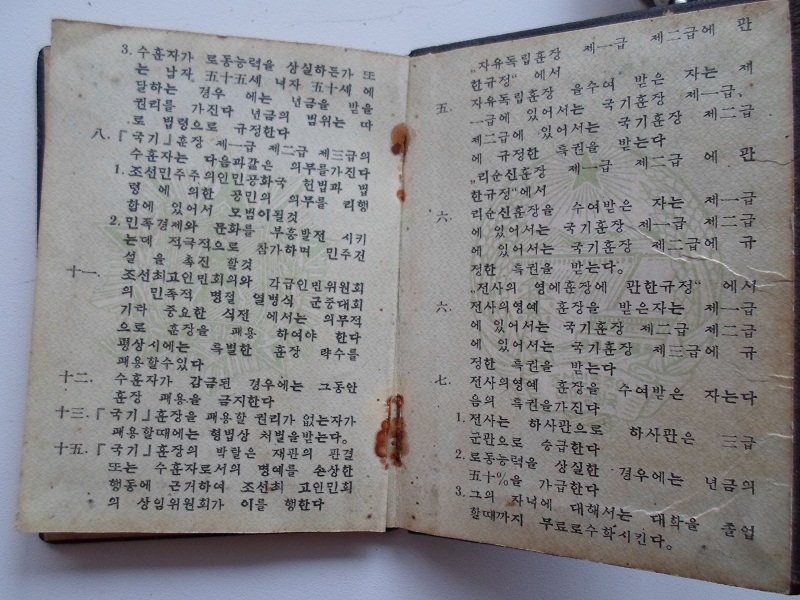 3. 수훈자가 로동능력을 상실하든가 또
는 남자 五十五세 녀자 五十세 에
달하는 경우 에는 년금을 받을
권리를 가진다 년금의 범위는 따
로 법령으로 규정한다
八. 『국기』훈장 제一급 제二급 제三급의
수훈자는 다음과같은 의무를가진다
1. 조선민주주의인민공화국 헌법과 법
령 에 의한 공민의 의무를 리행
함에 있어서 모범이될것
2. 민족경제와 문화를 부흥발전 시키
는데 적극적으로 참가하며 민주건
설 을 촉진 할것
十一. 조선최고인민회의와 각급인민위원회
의 민족적 명절 열병식 군중대회
기타 중요한 식전 에서는 의무적
으로 훈장을 패용 하여야 한다
평상시에는 특별한 훈장 략수를
패용할수있다
十二. 수훈자가 감금된 경우에는 그동안
훈장 패용을 금지한다
十三. 『국기』훈장을 패용할 권리가 없는자가
패용할때에는 형법상 처벌을받는다.
十五. 『국기』훈장의 박탈은 재판의 판결
또는 수훈자로서의 명예를 손상한
행동에 근거하여 조선최 고인민회
의 상임위원회가 이를 행한다
„자유독립훈장 제一급 제二급에 관
한규정" 에서
五. 자유독립훈장 을수여 받은 자는 제
一급에 있어서는 국기훈장 제一급,
제二급에 있어서는 국기훈장 제二급
에 규정한 특권을 받는다
„리순신훈장 제一급 제二급 에 관
한규정"에서
六. 리순신훈장을 수여받은 자는 제一급
에 있어서는 국기훈장 제一급 제二급
에 있어서는 국기훈장 제二급 에 규
정한 특권을 받는다。
„전사의 영예훈장에 관한규정" 에서
六. 전사의영예 훈장을 받은자는 제一급
에 있어서는 국기훈장 제二급 제二급
에 있어서는 국기훈장 제三급에 규
정한 특권을 받는다
七. 전사의영예 훈장을 수여받은 자는다
음의 특권을가진다
1. 전사는 하사관으로 하사관은 三급
군관으로 승급한다
2. 로동능력을 상실한 경우에는 년금의
五十%을 가급한다
3. 그의 자녀에 대해서는 대학을 졸업
할때까지 무료로수학시킨다。